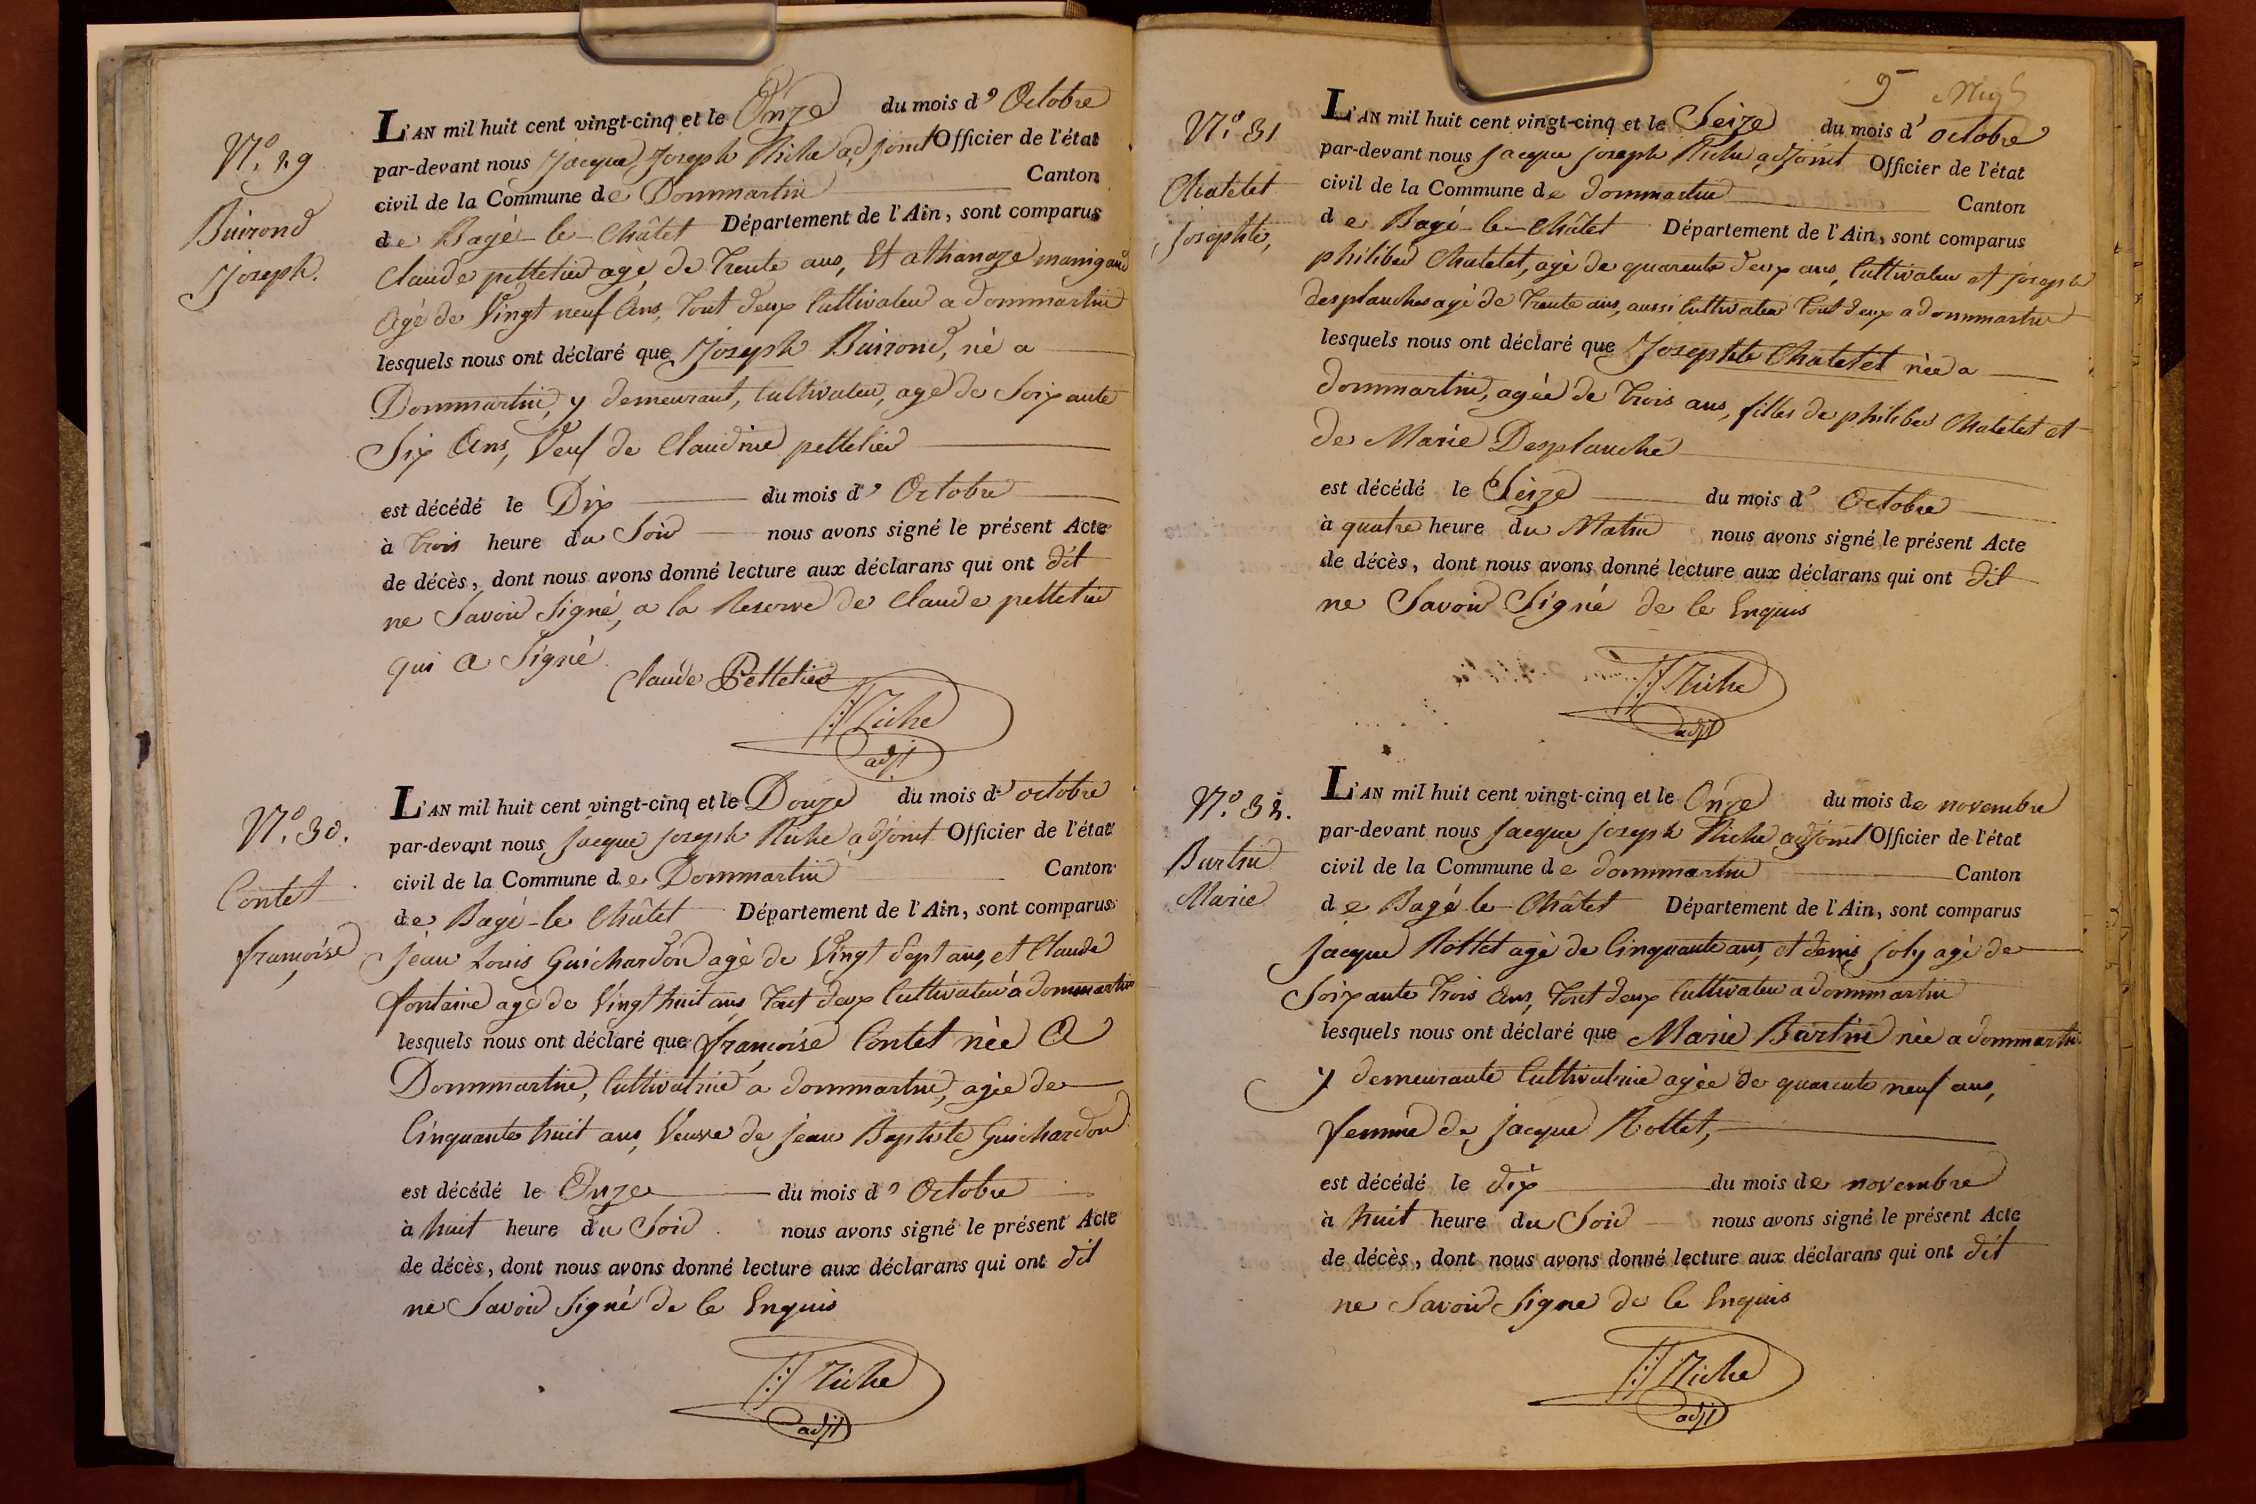 N.º 29
Buirond
Joseph.
L'AN mil huit cent vingt-cinq et le Onze du mois d' Octobre
par-devant nous Jacque Joseph Riche adjoint Officier de l'état
civil de la Commune de Dommartin Canton
de Bagé-le-Châtet Département de l'Ain, sont comparus
Claude pelletier agé de trente ans, Et athanaze manigand
Agé de Vingt neuf Ans, tout deux Cultivateur a dommartin
lesquels nous ont déclaré que Joseph Buirond, né a
Dommartin, y demeurant, Cultivateur, agé de Soixante
Six Ans, Veuf de Claudine pelletier
est décédé le Dix du mois d' Octobre
à trois heure du Soir nous avons signé le présent Acte
de décès, dont nous avons donné lecture aux déclarans qui ont dit
ne Savoir Signé, a la Reserve de Claude pelletier
qui a Signé.
Claude Pelletier
JJ Riche
adjt
N.º 30.
Contet
françoise
L'AN mil huit cent vingt-cinq et le Douze du mois d' octobre
par-devant nous Jacque Joseph Riche adjoint Officier de l'état
civil de la Commune de Dommartin Canton
de Bagé-le Châtet Département de l'Ain, sont comparus
Jean Louis Guichardon agé de Vingt Sept ans, et Claude
fontaine agé de Vingt huit ans, tout deux Cultivateur à dommartin
lesquels nous ont déclaré que françoise Contet née A
Dommartin, Cultivatrice a dommartin, agée de
Cinquante huit ans, Veuve de Jean Baptiste Guichardon
est décédé le Onze du mois d' Octobre
à huit heure du Soir nous avons signé le présent Acte
de décès, dont nous avons donné lecture aux déclarans qui ont dit
ne Savoir Signé de ce Enquis
JJ Riche
adjt
9
N.º 31
Chatelet
Josephte,
L'AN mil huit cent vingt-cinq et le Seize du mois d' octobre
par-devant nous Jacque Joseph Riche adjoint Officier de l'état
civil de la Commune de dommartin Canton
de Bagé-le-Châtet Département de l'Ain, sont comparus
philiber Chatelet, agé de quarente deux ans, Cultivateur et Joseph
desplanches agé de trente ans, aussi Cultivateur tout deux a dommartin
lesquels nous ont déclaré que Josephte Chatelet née a
dommartin, agée de trois ans, filles de philiber Chatelet et
de Marie Desplanche
est décédé le Seize du mois d' Octobre
à quatre heure du Matin nous avons signé le présent Acte
de décès, dont nous avons donné lecture aux déclarans qui ont dit
ne Savoir Signé de ce Enquis
JJ Riche
adjt
N.º 32.
Burtin
Marie
L'AN mil huit cent vingt-cinq et le Onze du mois de novembre
par-devant nous Jacque Joseph Riche adjoint Officier de l'état
civil de la Commune de dommartin Canton
de Bagé le-Châtet Département de l'Ain, sont comparus
Jacque Rollet agé de Cinquante ans, et denis Joly agé de
Soixante trois Ans, tout deux Cultivateur a dommartin
lesquels nous ont déclaré que Marie Burtin née a dommartin
y demeurante Cultivatrice agée de quarente neuf ans,
femme de Jacque Rollet,
est décédé le dix du mois de novembre
à huit heure du Soir nous avons signé le présent Acte
de décès, dont nous avons donné lecture aux déclarans qui ont dit
ne Savoir Signe de ce Enquis
JJ Riche
adjt